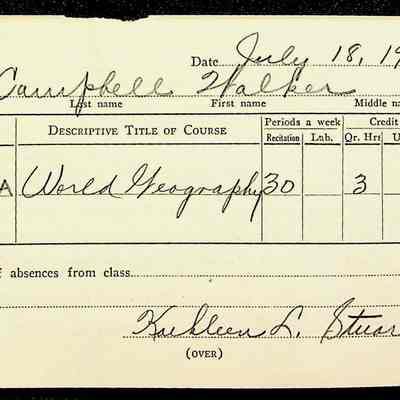 Date July 18, 19
Campbell Walker
Last name First name Middle n
DESCRIPTIVE TITLE OF COURSE Periods a week Credit
Recitation Lab. Qr. Hrs U
A World Geography 30 3
f absences from class
Kathleen L. Stuar
(OVER)